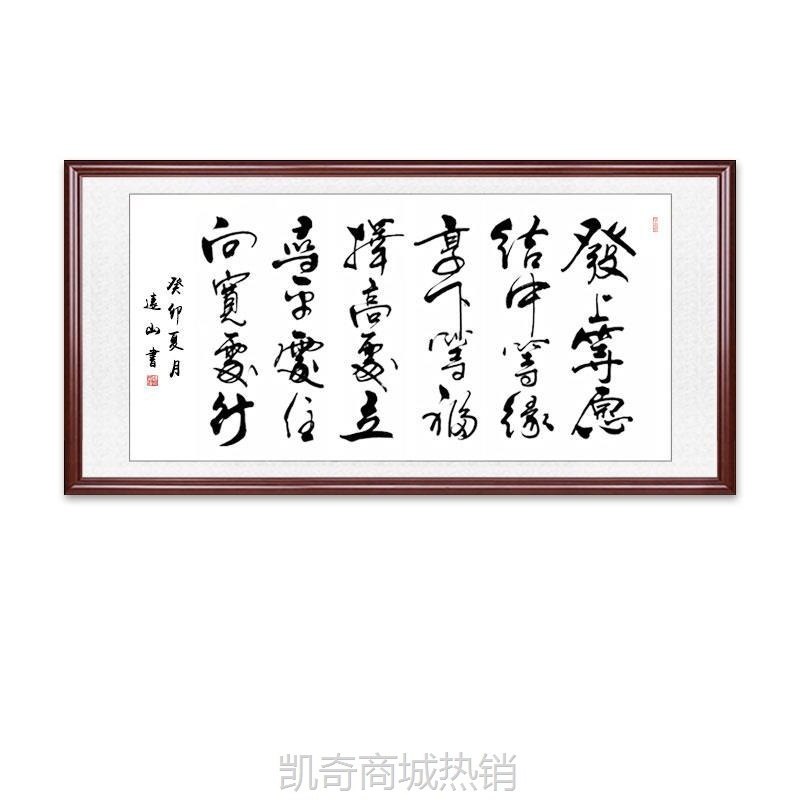 發上等愿
结中等缘
享下等福
擇高處立
尋平處住
向寬處行
癸卯夏月
遠山書
凯奇商城热销